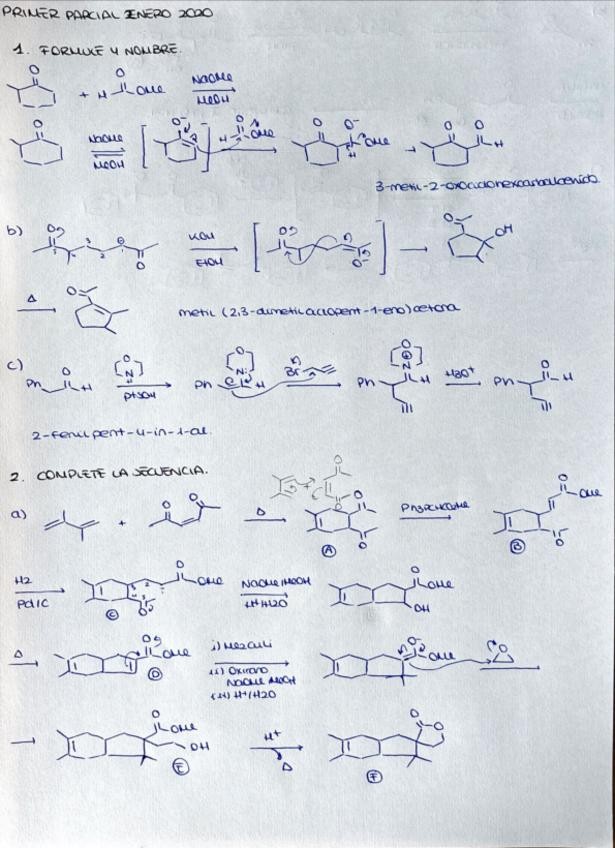 PRIMER PARCIAL ENERO 2020
1. FORMULE Y NOMBRE.
O O
+ H OMe NaOMe
MeOH
O NaOMe O⁻ H O OMe O O⁻ OMe H O O H
MeOH
3-metil-2-oxociclohexacarbaldehído.
b) O 5 4 3 2 1 O KOH O O⁻ O OH
EtOH
Δ O metil (2,3-dimetilciclopent-1-eno)cetona
c) Ph O H O N H Ph O N H Br Ph O N H H3O⁺ Ph O H
PTSOH
2-fenilpent-4-in-1-al.
2. COMPLETE LA SECUENCIA.
a) + O O Δ O O A Ph3PCHCOMe O OMe O B
H2 O OMe NaOMe/MeOH O OMe
Pd/C C H⁺/H2O OH
Δ O OMe i) Me2CuLi O⁻ OMe O
D ii) Oxirano
NaOMe MeOH
iii) H⁺/H2O
O OMe OH H⁺ O O
E Δ F